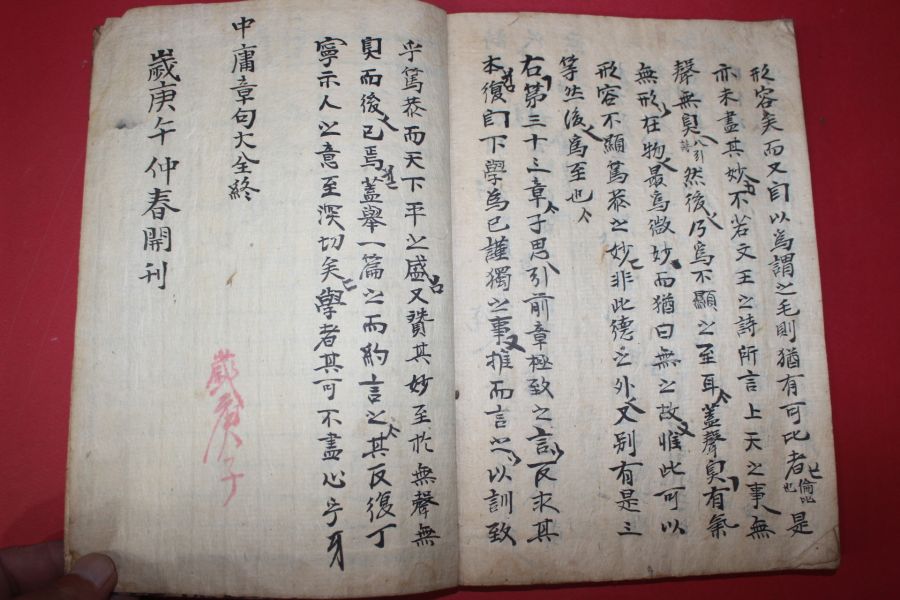 形容矣而又自以爲謂之毛則猶有可比者是
倫比也
亦未盡其妙不若文王之詩所言上天之事無
聲無臭然後乃爲不顯之至耳蓋聲臭有氣
無形在物最爲微妙而猶曰無之故惟此可以
形容不顯篤恭之妙非此德之外又别有是三
等然後爲至也
右第三十三章子思引前章極致之言反求其
本復自下學爲己謹獨之事推而言之以訓致
乎篤恭而天下平之盛又贊其妙至於無聲無
臭而後已焉蓋舉一篇之而約言之其反復丁
寧示人之意至深切矣學者其可不盡心乎
中庸章句大全終
歲庚午仲春開刊
歲庚子